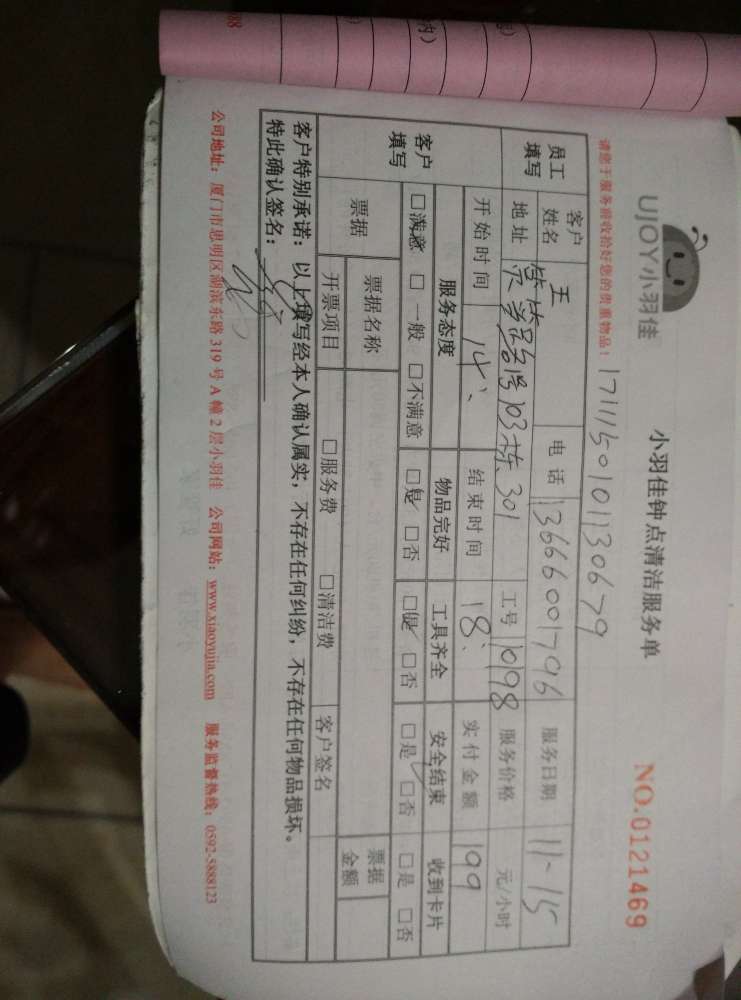 UJOY小羽佳
小羽佳钟点清洁服务单
NO.0121469
请您于服务前收拾好您的贵重物品！
171115010130679
员工填写
客户姓名 王 电话 13666001796 服务日期 11-15
地址 103栋、301 工号 1098 服务价格 元/小时
开始时间 14： 结束时间 18： 实付金额 199
客户填写
服务态度 物品完好 工具齐全 安全结束 收到卡片
□满意 □一般 □不满意 □是 □否 □是 □否 □是 □否 □是 □否
票据 票据名称 票据金额
开票项目 □服务费 □清洁费 客户签名
客户特别承诺：以上填写经本人确认属实，不存在任何纠纷，不存在任何物品损坏。
特此确认签名：
公司地址：厦门市思明区湖滨东路 319 号 A 幢 2 层小羽佳 公司网站：www.xiaoyujia.com 服务监督热线：0592-5888123